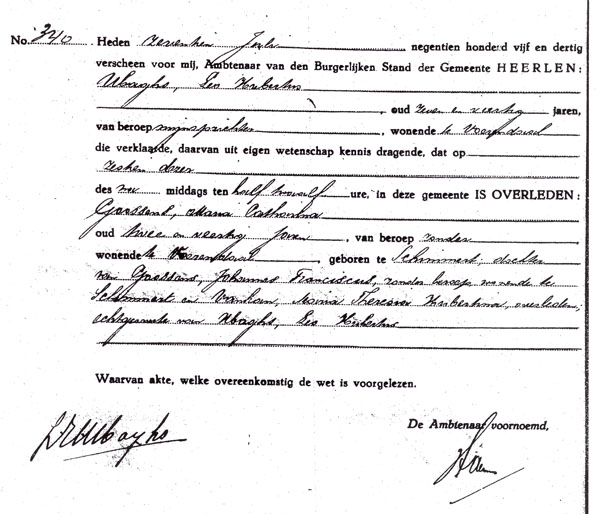 No. 340 Heden zeventien Juli negentien honderd vijf en dertig
verscheen voor mij, Ambtenaar van den Burgerlijken Stand der Gemeente HEERLEN:
Ubaghs, Leo Hubertus
, oud zeven en veertig jaren,
van beroep mijnopzichter, wonende te Voerendaal
die verklaarde, daarvan uit eigen wetenschap kennis dragende, dat op
zestien dezer
des middags ten half twaalf ure, in deze gemeente IS OVERLEDEN:
Goossens, Maria Catharina
oud twee en veertig jaren, van beroep zonder
wonende te Voerendaal, geboren te Schimmert, dochter
van Goossens, Johannes Franciscus, zonder beroep wonende te
Schimmert en Vanham, Maria Theresia Hubertina, overleden,
echtgenoote van Ubaghs, Leo Hubertus
Waarvan akte, welke overeenkomstig de wet is voorgelezen.
De Ambtenaar voornoemd,
LHUbaghs